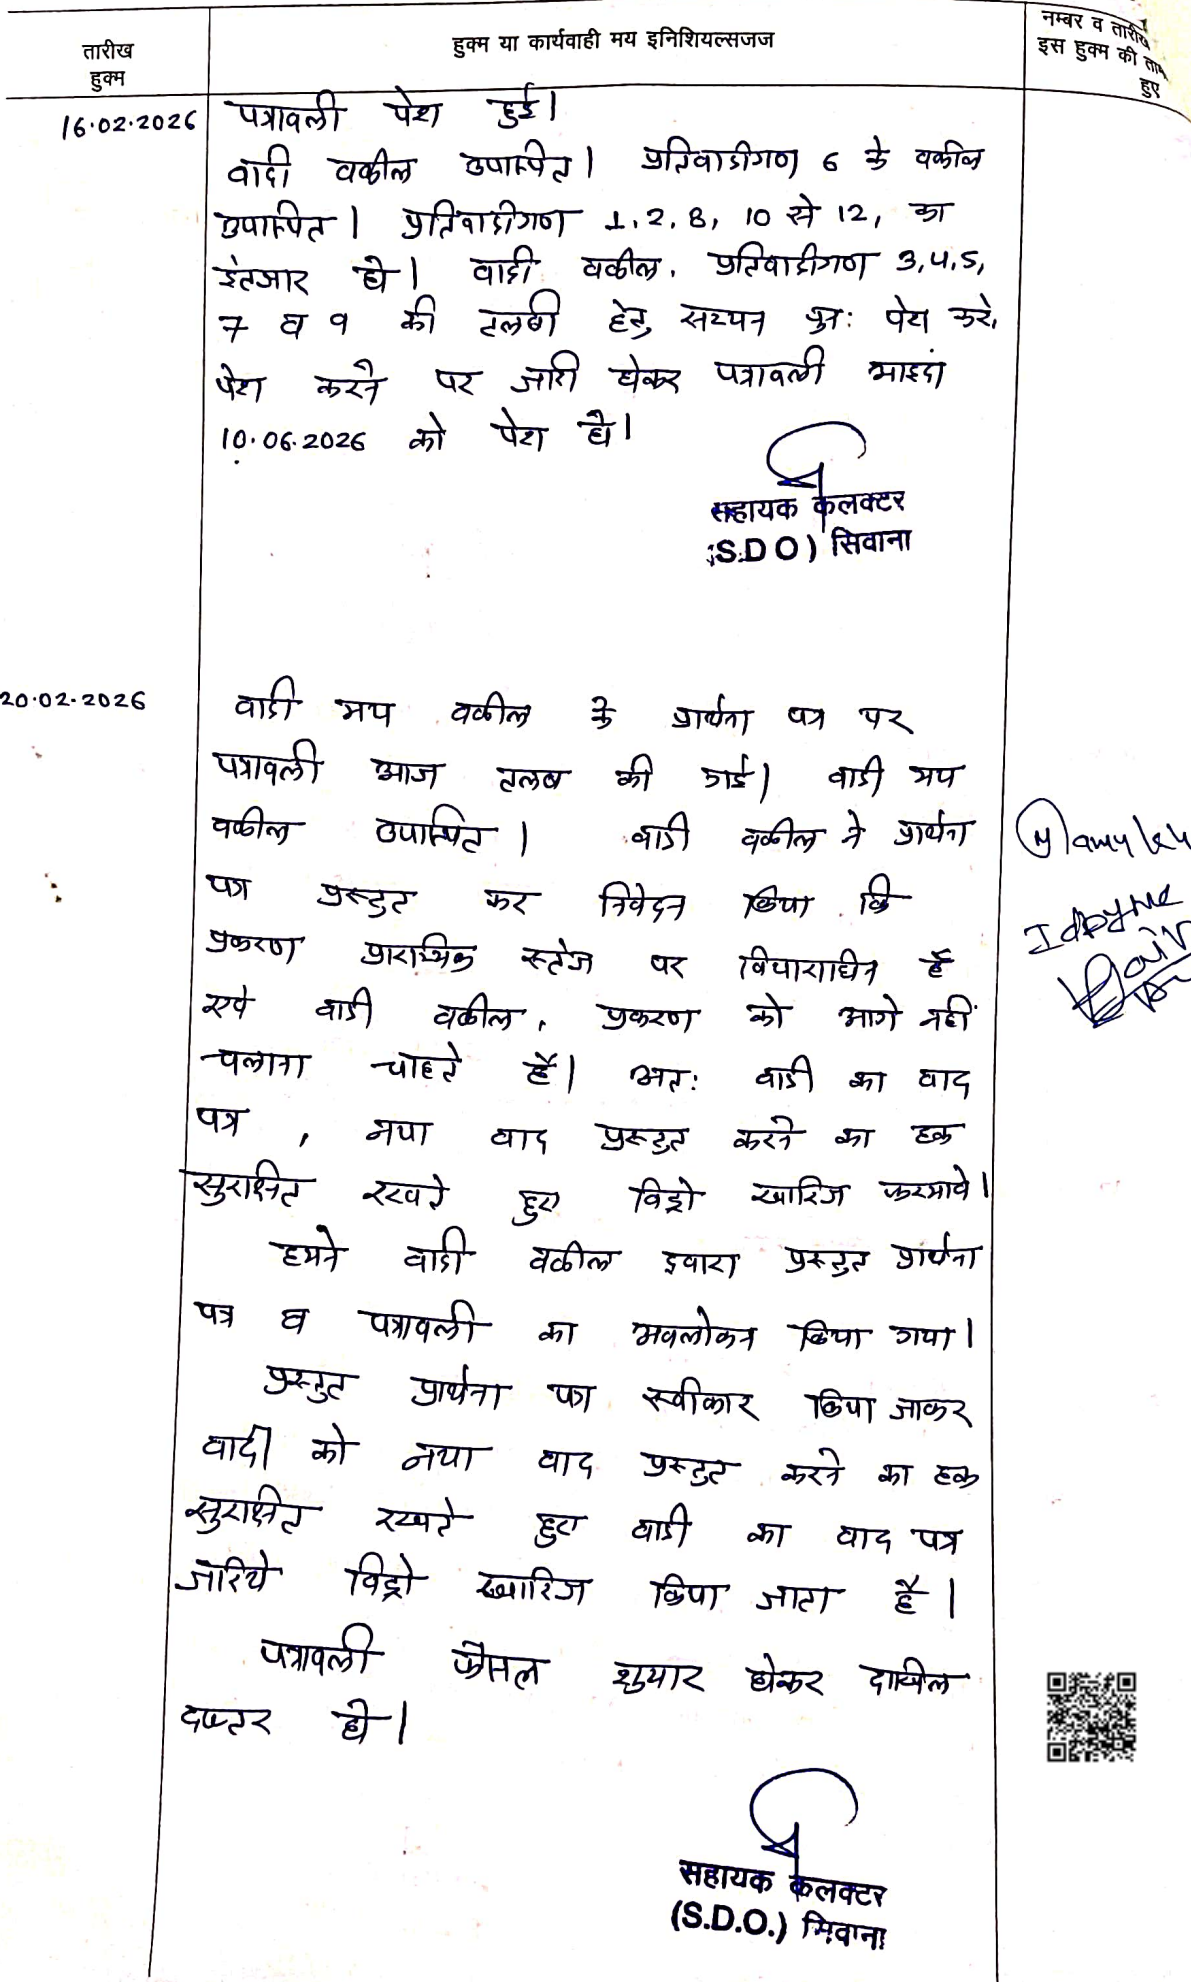 तारीख
हुक्म
हुक्म या कार्यवाही मय इनिशियल्सजज
नम्बर व तारीख
इस हुक्म की ता
हुए
16.02.2026
पत्रावली पेश हुई।
वादी वकील उपस्थित। प्रतिवादीगण 6 के वकील
उपस्थित। प्रतिवादीगण 1, 2, 8, 10 से 12, का
इंतजार हो। वादी वकील, प्रतिवादीगण 3, 4, 5,
7 व 9 की तलबी हेतु सम्मन पुनः पेश करे,
पेश करने पर जारी होकर पत्रावली आइंदा
10.06.2026 को पेश हो।
सहायक कलक्टर
(S.D.O) सिवाना
20.02.2026
वादी मय वकील के प्रार्थना पत्र पर
पत्रावली आज तलब की गई। वादी मय
वकील उपस्थित। वादी वकील ने प्रार्थना
पत्र प्रस्तुत कर निवेदन किया कि
प्रकरण प्रारम्भिक स्टेज पर विचाराधीन है
एवं वादी वकील, प्रकरण को आगे नहीं
चलाना चाहते हैं। अतः वादी का वाद
पत्र, नया वाद प्रस्तुत करने का हक
सुरक्षित रखते हुए विड्रो खारिज फरमावे।
हमने वादी वकील द्वारा प्रस्तुत प्रार्थना
पत्र व पत्रावली का अवलोकन किया गया।
प्रस्तुत प्रार्थना पत्र स्वीकार किया जाकर
वादी को नया वाद प्रस्तुत करने का हक
सुरक्षित रखते हुए वादी का वाद पत्र
जरिये विड्रो खारिज किया जाता है।
पत्रावली फैसल शुमार होकर दाखिल
दफ्तर हो।
सहायक कलक्टर
(S.D.O.) सिवाना